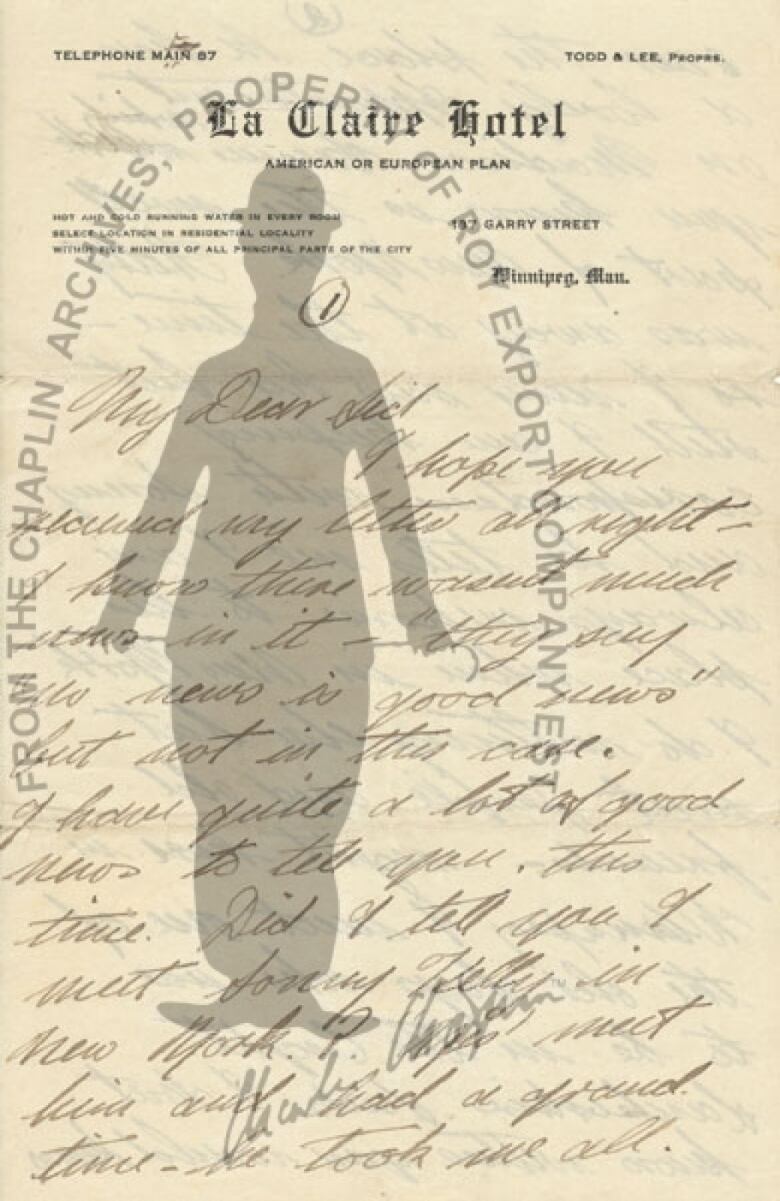 TELEPHONE MAIN 67
TODD & LEE, PROPRS.
La Claire Hotel
AMERICAN OR EUROPEAN PLAN
HOT AND COLD RUNNING WATER IN EVERY ROOM
SELECT LOCATION IN RESIDENTIAL LOCALITY
WITHIN FIVE MINUTES OF ALL PRINCIPAL PARTS OF THE CITY
GARRY STREET
Winnipeg, Man.
1
My Dear Sid
I hope you
received my letter all right –
I know there wasent much
news in it – "they say
no news is good news"
but not in this case.
I have quite a lot of good
news to tell you. this
time. Did I tell you I
meet Sonny Kelly in
New York.? Yes meet
him and had a grand
time – he took me all.
FROM THE CHAPLIN ARCHIVES, PROPERTY OF ROY EXPORT COMPANY EST
Charlie Chaplin